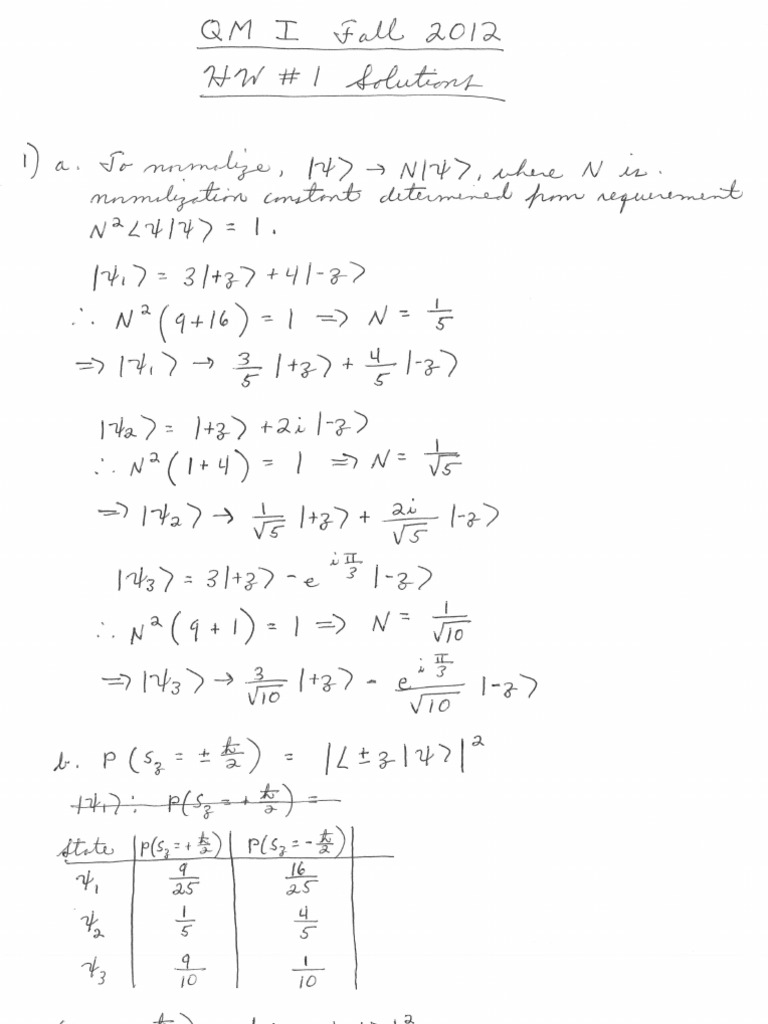 QM I Fall 2012
HW #1 Solutions
1) a. To normalize, |ψ> → N|ψ>, where N is
normalization constant determined from requirement
N²<ψ|ψ> = 1.
|ψ₁> = 3|+z> + 4|-z>
∴ N²(9+16) = 1 => N = 1/5
=> |ψ₁> → 3/5 |+z> + 4/5 |-z>
|ψ₂> = |+z> + 2i|-z>
∴ N²(1+4) = 1 => N = 1/√5
=> |ψ₂> → 1/√5 |+z> + 2i/√5 |-z>
|ψ₃> = 3|+z> - e^{iπ/3} |-z>
∴ N²(9+1) = 1 => N = 1/√10
=> |ψ₃> → 3/√10 |+z> - e^{iπ/3}/√10 |-z>
b. P(S_z = ± ℏ/2) = |<±z|ψ>|²
|ψ₁>: P(S_z = + ℏ/2) =
State P(S_z = + ℏ/2) P(S_z = - ℏ/2)
ψ₁ 9/25 16/25
ψ₂ 1/5 4/5
ψ₃ 9/10 1/10